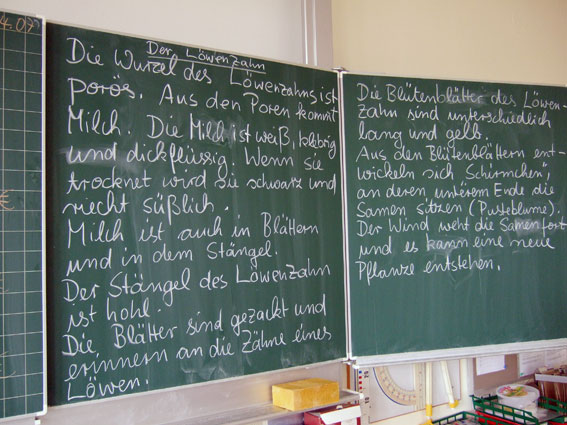 4.09
Der Löwenzahn
Die Wurzel des Löwenzahns ist
porös. Aus den Poren kommt
Milch. Die Milch ist weiß, klebrig
und dickflüssig. Wenn sie
trocknet wird sie schwarz und
riecht süßlich.
Milch ist auch in Blättern
und in dem Stängel.
Der Stängel des Löwenzahn
ist hohl.
Die Blätter sind gezackt und
erinnern an die Zähne eines
Löwen.
Die Blütenblätter des Löwen-
zahn sind unterschiedlich
lang und gelb.
Aus den Blütenblättern ent-
wickeln sich „Schirmchen",
an deren unterem Ende die
Samen sitzen (Pusteblume).
Der Wind weht die Samen fort
und es kann eine neue
Pflanze entstehen.